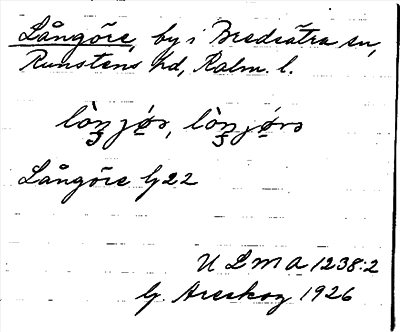 Långöre, by i Bredsätra sn,
Runstens hd, Kalm. l.
lòŋjøs, lòŋjørs
Långöre G 22
ULMA 1238:2
G. Areskog 1926